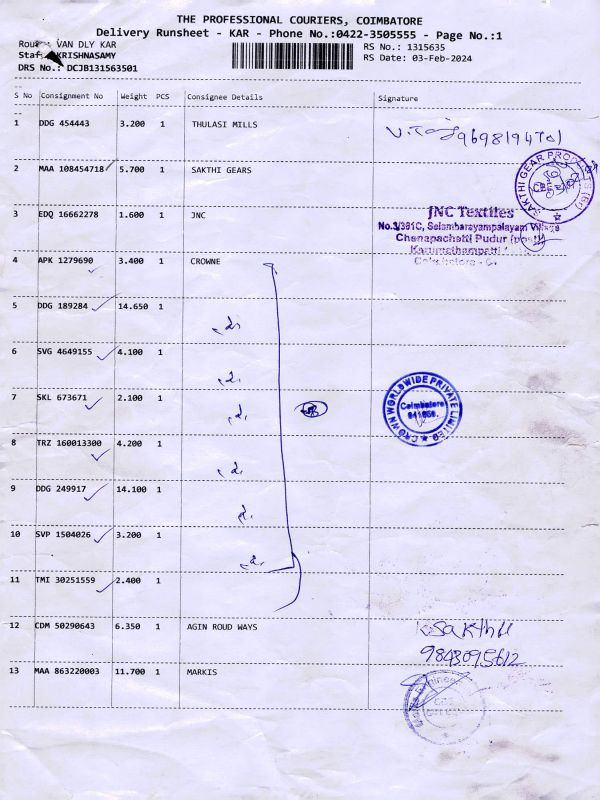 THE PROFESSIONAL COURIERS, COIMBATORE
Delivery Runsheet - KAR - Phone No.:0422-3505555 - Page No.:1
VAN DLY KAR
RS No.: 1315635
KRISHNASAMY
RS Date: 03-Feb-2024
DRS No.: DCJB131563501
S No Consignment No Weight PCS Consignee Details Signature
1 DDG 454443 3.200 1 THULASI MILLS
2 MAA 108454718 5.700 1 SAKTHI GEARS
SAKTHI GEAR PRODUCTS
3 EDQ 16662278 1.600 1 JNC
JNC Textiles
No.3/381C, Selambarayampalayam Village
Chenapachetti Pudur (post)
Karumathampatti
4 APK 1279690 3.400 1 CROWNE
5 DDG 189284 14.650 1
6 SVG 4649155 4.100 1
7 SKL 673671 2.100 1
CROWN WORLDWIDE PRIVATE LIMITED
Coimbatore
8 TRZ 160013300 4.200 1
9 DDG 249917 14.100 1
10 SVP 1504026 3.200 1
11 TMI 30251559 2.400 1
12 CDM 50290643 6.350 1 AGIN ROUD WAYS
9843095612
13 MAA 863220003 11.700 1 MARKIS